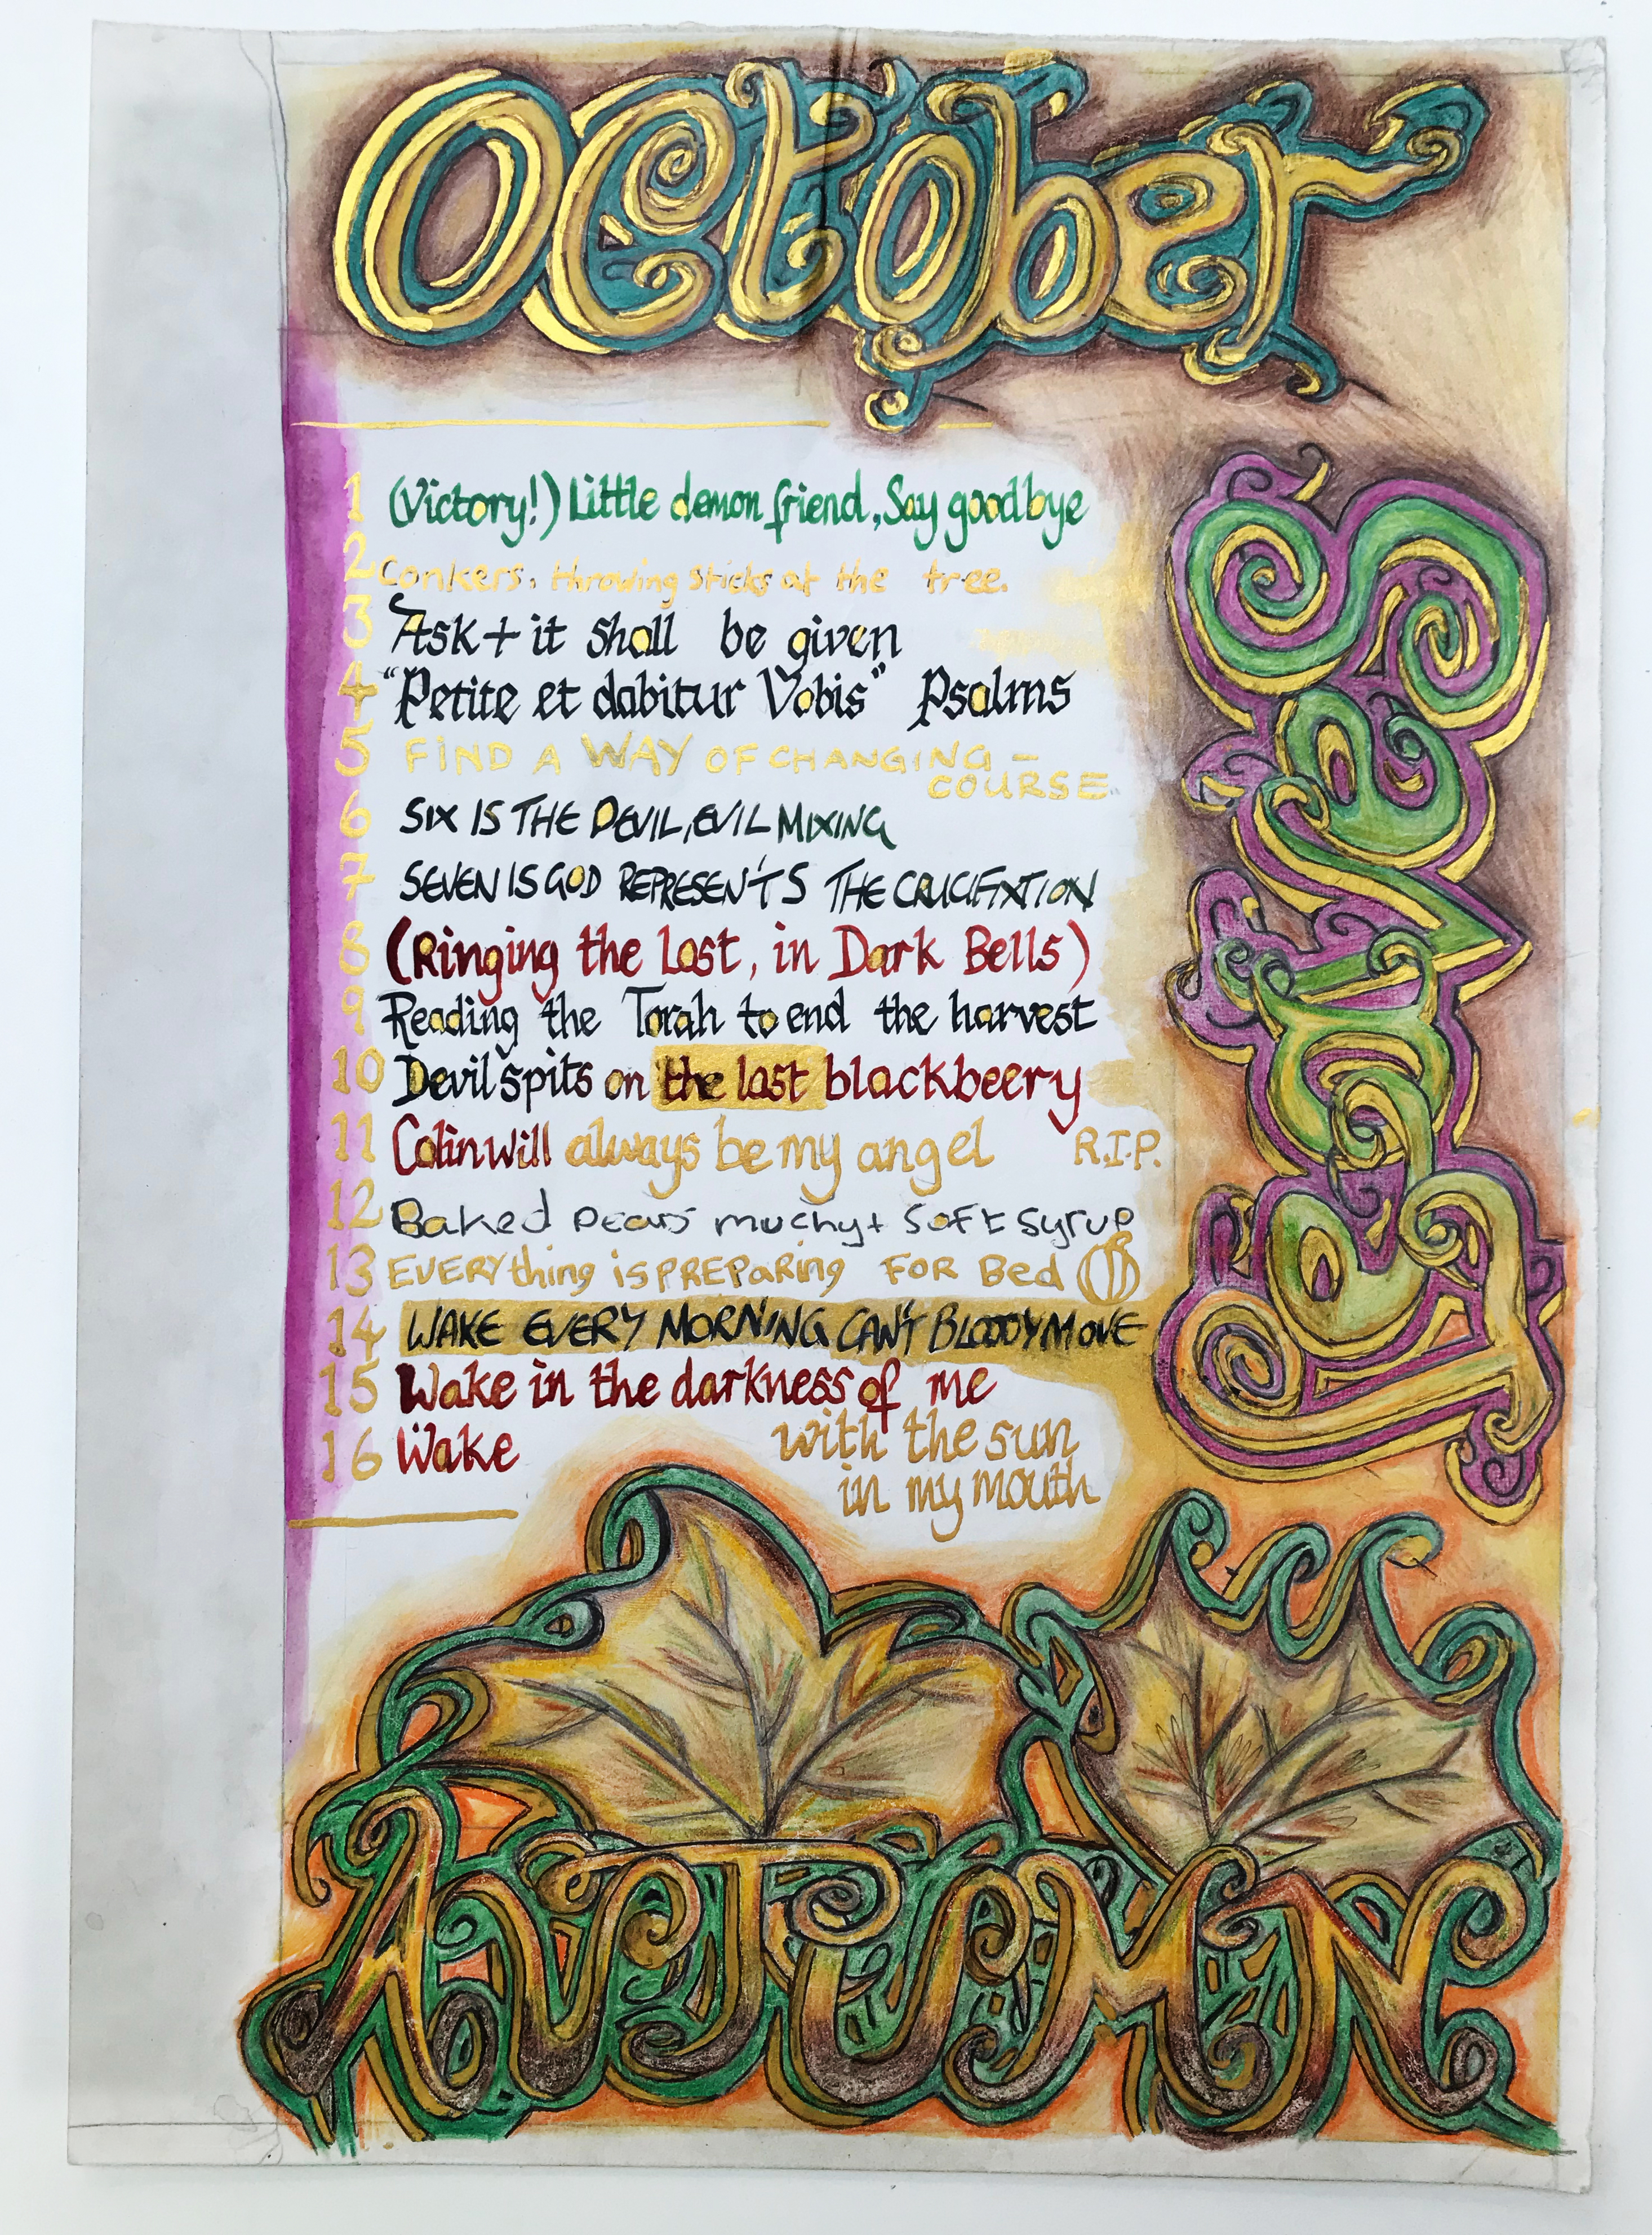 October
1 (Victory!) Little demon friend, Say goodbye
2 Conkers, throwing sticks at the tree.
3 Ask + it shall be given
4 "Petite et dabitur Vobis" Psalms
5 FIND A WAY OF CHANGING - COURSE.
6 SIX IS THE DEVIL, EVIL MIXING
7 SEVEN IS GOD REPRESENTS THE CRUCIFIXTION
8 (Ringing the Lost, in Dark Bells)
9 Reading the Torah to end the harvest
10 Devil spits on the last blackbeery
11 Colin will always be my angel R.I.P.
12 Baked pears muchy + soft syrup
13 EVERYthing is PREPaRing FOR Bed
14 WAKE EVERY MORNING CAN'T BLOODY MOVE
15 Wake in the darkness of me
16 Wake with the sun
in my mouth
AUTUMN